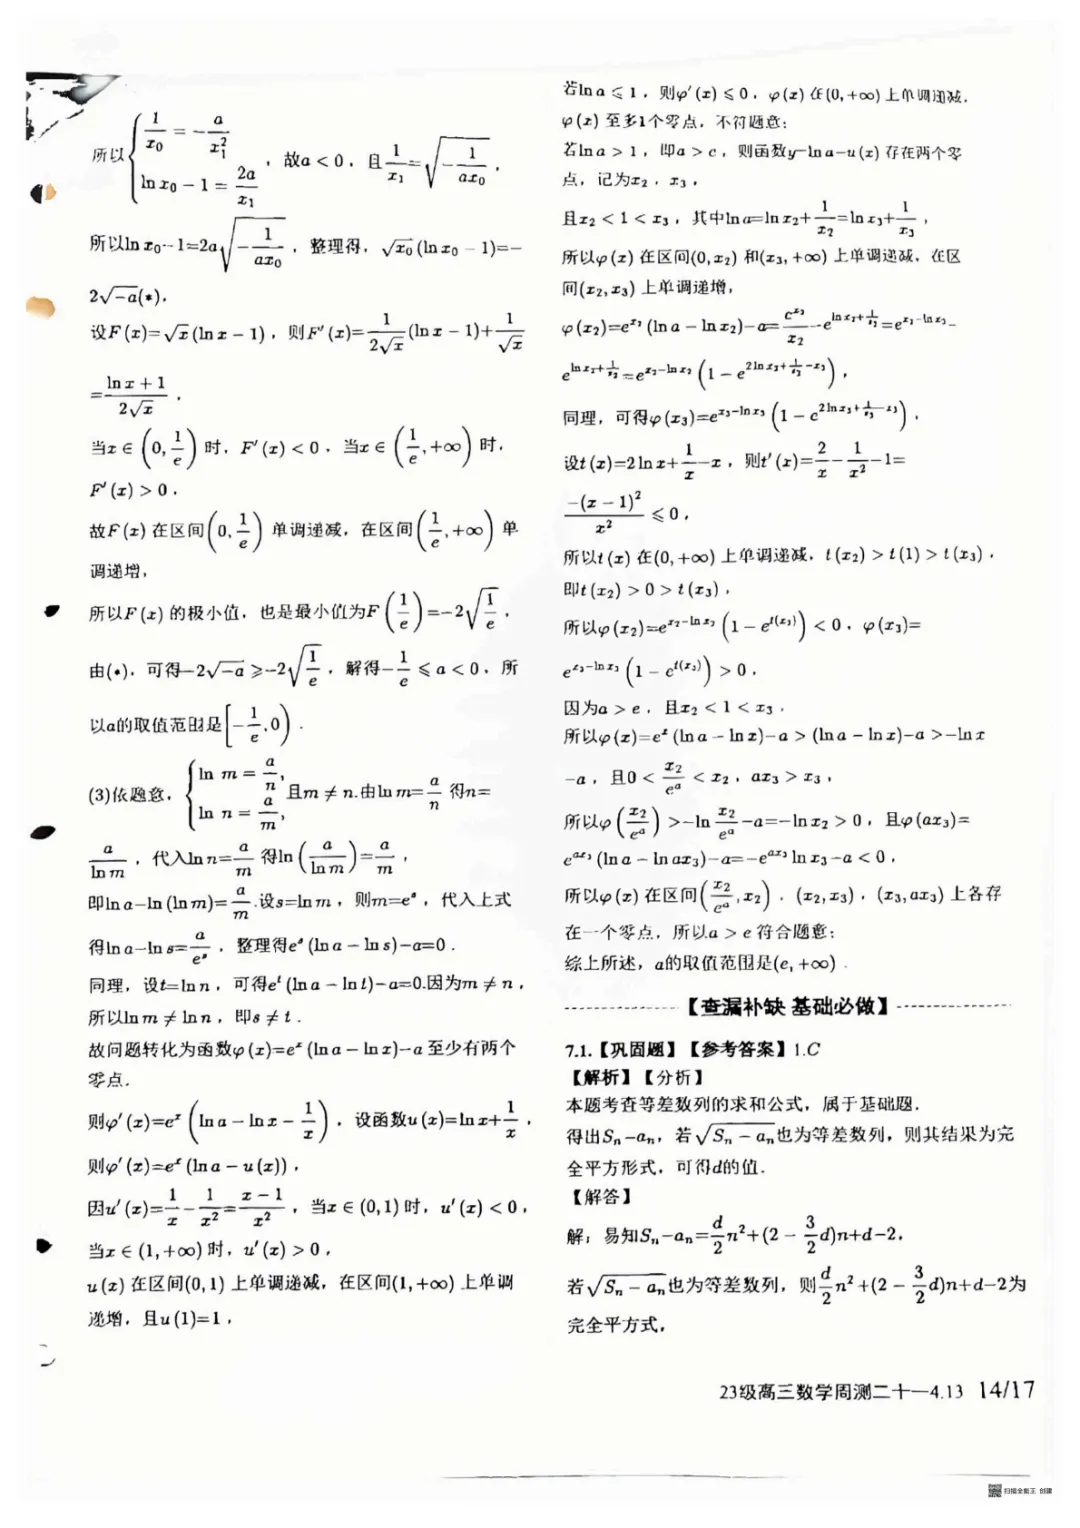 所以{1/x₀ = −a/x₁², ln x₀ − 1 = 2a/x₁ , 故a < 0 , 且1/x₁ = √(−1/(ax₀)) ,
所以ln x₀−1=2a√(−1/(ax₀)) , 整理得, √x₀ (ln x₀ − 1)=−
2√−a(*),
设F (x)=√x (ln x − 1) , 则F′ (x)= 1/(2√x) (ln x − 1)+ 1/√x
= (ln x + 1)/(2√x) ,
当x ∈ (0, 1/e) 时, F′ (x) < 0 , 当x ∈ (1/e, +∞) 时,
F′ (x) > 0 .
故F (x) 在区间(0, 1/e) 单调递减, 在区间(1/e, +∞) 单
调递增,
所以F (x) 的极小值, 也是最小值为F (1/e) =−2√(1/e) ,
由(*), 可得−2√−a ⩾−2√(1/e) , 解得−1/e ⩽ a < 0 , 所
以a的取值范围是[−1/e, 0) .
(3)依题意, {ln m = a/n, ln n = a/m, 且m ≠ n.由ln m= a/n 得n=
a/ln m , 代入ln n= a/m 得ln (a/ln m)= a/m ,
即ln a−ln (ln m)= a/m .设s=ln m , 则m=eˢ , 代入上式
得ln a−ln s= a/eˢ , 整理得eˢ (ln a − ln s)−a=0 .
同理, 设t=ln n , 可得eᵗ (ln a − ln t)−a=0.因为m ≠ n ,
所以ln m ≠ ln n , 即s ≠ t .
故问题转化为函数φ (x)=eˣ (ln a − ln x)−a 至少有两个
零点.
则φ′ (x)=eˣ (ln a − ln x − 1/x) , 设函数u (x)=ln x+ 1/x ,
则φ′ (x)=eˣ (ln a − u (x)) ,
因u′ (x)= 1/x − 1/x² = (x − 1)/x² , 当x ∈ (0, 1) 时, u′ (x) < 0 ,
当x ∈ (1, +∞) 时, u′ (x) > 0 ,
u (x) 在区间(0, 1) 上单调递减, 在区间(1, +∞) 上单调
递增, 且u (1)=1 ,
若ln a ⩽ 1 , 则φ′ (x) ⩽ 0 , φ (x) 在(0, +∞) 上单调递减,
φ (x) 至多1个零点, 不符题意;
若ln a > 1 , 即a > e , 则函数y=ln a−u (x) 存在两个零
点, 记为x₂ , x₃ ,
且x₂ < 1 < x₃ , 其中ln a=ln x₂+ 1/x₂ =ln x₃+ 1/x₃ ,
所以φ (x) 在区间(0, x₂) 和(x₃, +∞) 上单调递减, 在区
间(x₂, x₃) 上单调递增,
φ (x₂)=e^(x₂) (ln a − ln x₂)−a= e^(x₂)/x₂ −e^(ln x₂+1/x₂) =e^(x₂−ln x₂)−
e^(ln x₂+1/x₂) =e^(x₂−ln x₂) (1 − e^(2 ln x₂+1/x₂−x₂)) ,
同理, 可得φ (x₃)=e^(x₃−ln x₃) (1 − e^(2 ln x₃+1/x₃−x₃)) ,
设t (x)=2 ln x+ 1/x −x , 则t′ (x)= 2/x − 1/x² −1=
−(x − 1)²/x² ⩽ 0 ,
所以t (x) 在(0, +∞) 上单调递减, t (x₂) > t (1) > t (x₃) ,
即t (x₂) > 0 > t (x₃) ,
所以φ (x₂)=e^(x₂−ln x₂) (1 − e^(t(x₂))) < 0 , φ (x₃)=
e^(x₃−ln x₃) (1 − e^(t(x₃))) > 0 .
因为a > e , 且x₂ < 1 < x₃ ,
所以φ (x)=eˣ (ln a − ln x)−a > (ln a − ln x)−a >−ln x
−a , 且0 < x₂/eᵃ < x₂ , ax₃ > x₃ ,
所以φ (x₂/eᵃ) >−ln x₂/eᵃ −a=−ln x₂ > 0 , 且φ (ax₃)=
e^(ax₃) (ln a − ln ax₃)−a=−e^(ax₃) ln x₃−a < 0 ,
所以φ (x) 在区间(x₂/eᵃ, x₂) , (x₂, x₃) , (x₃, ax₃) 上各存
在一个零点, 所以a > e 符合题意;
综上所述, a的取值范围是(e, +∞) .
【查漏补缺 基础必做】
7.1.【巩固题】【参考答案】1.C
【解析】【分析】
本题考查等差数列的求和公式, 属于基础题.
得出Sₙ−aₙ, 若√(Sₙ − aₙ)也为等差数列, 则其结果为完
全平方形式, 可得d的值.
【解答】
解: 易知Sₙ−aₙ= d/2 n²+(2 − 3/2 d)n+d−2,
若√(Sₙ − aₙ)也为等差数列, 则 d/2 n² +(2 − 3/2 d)n+d−2为
完全平方式,
23级高三数学周测二十一4.13 14/17
扫描全能王 创建